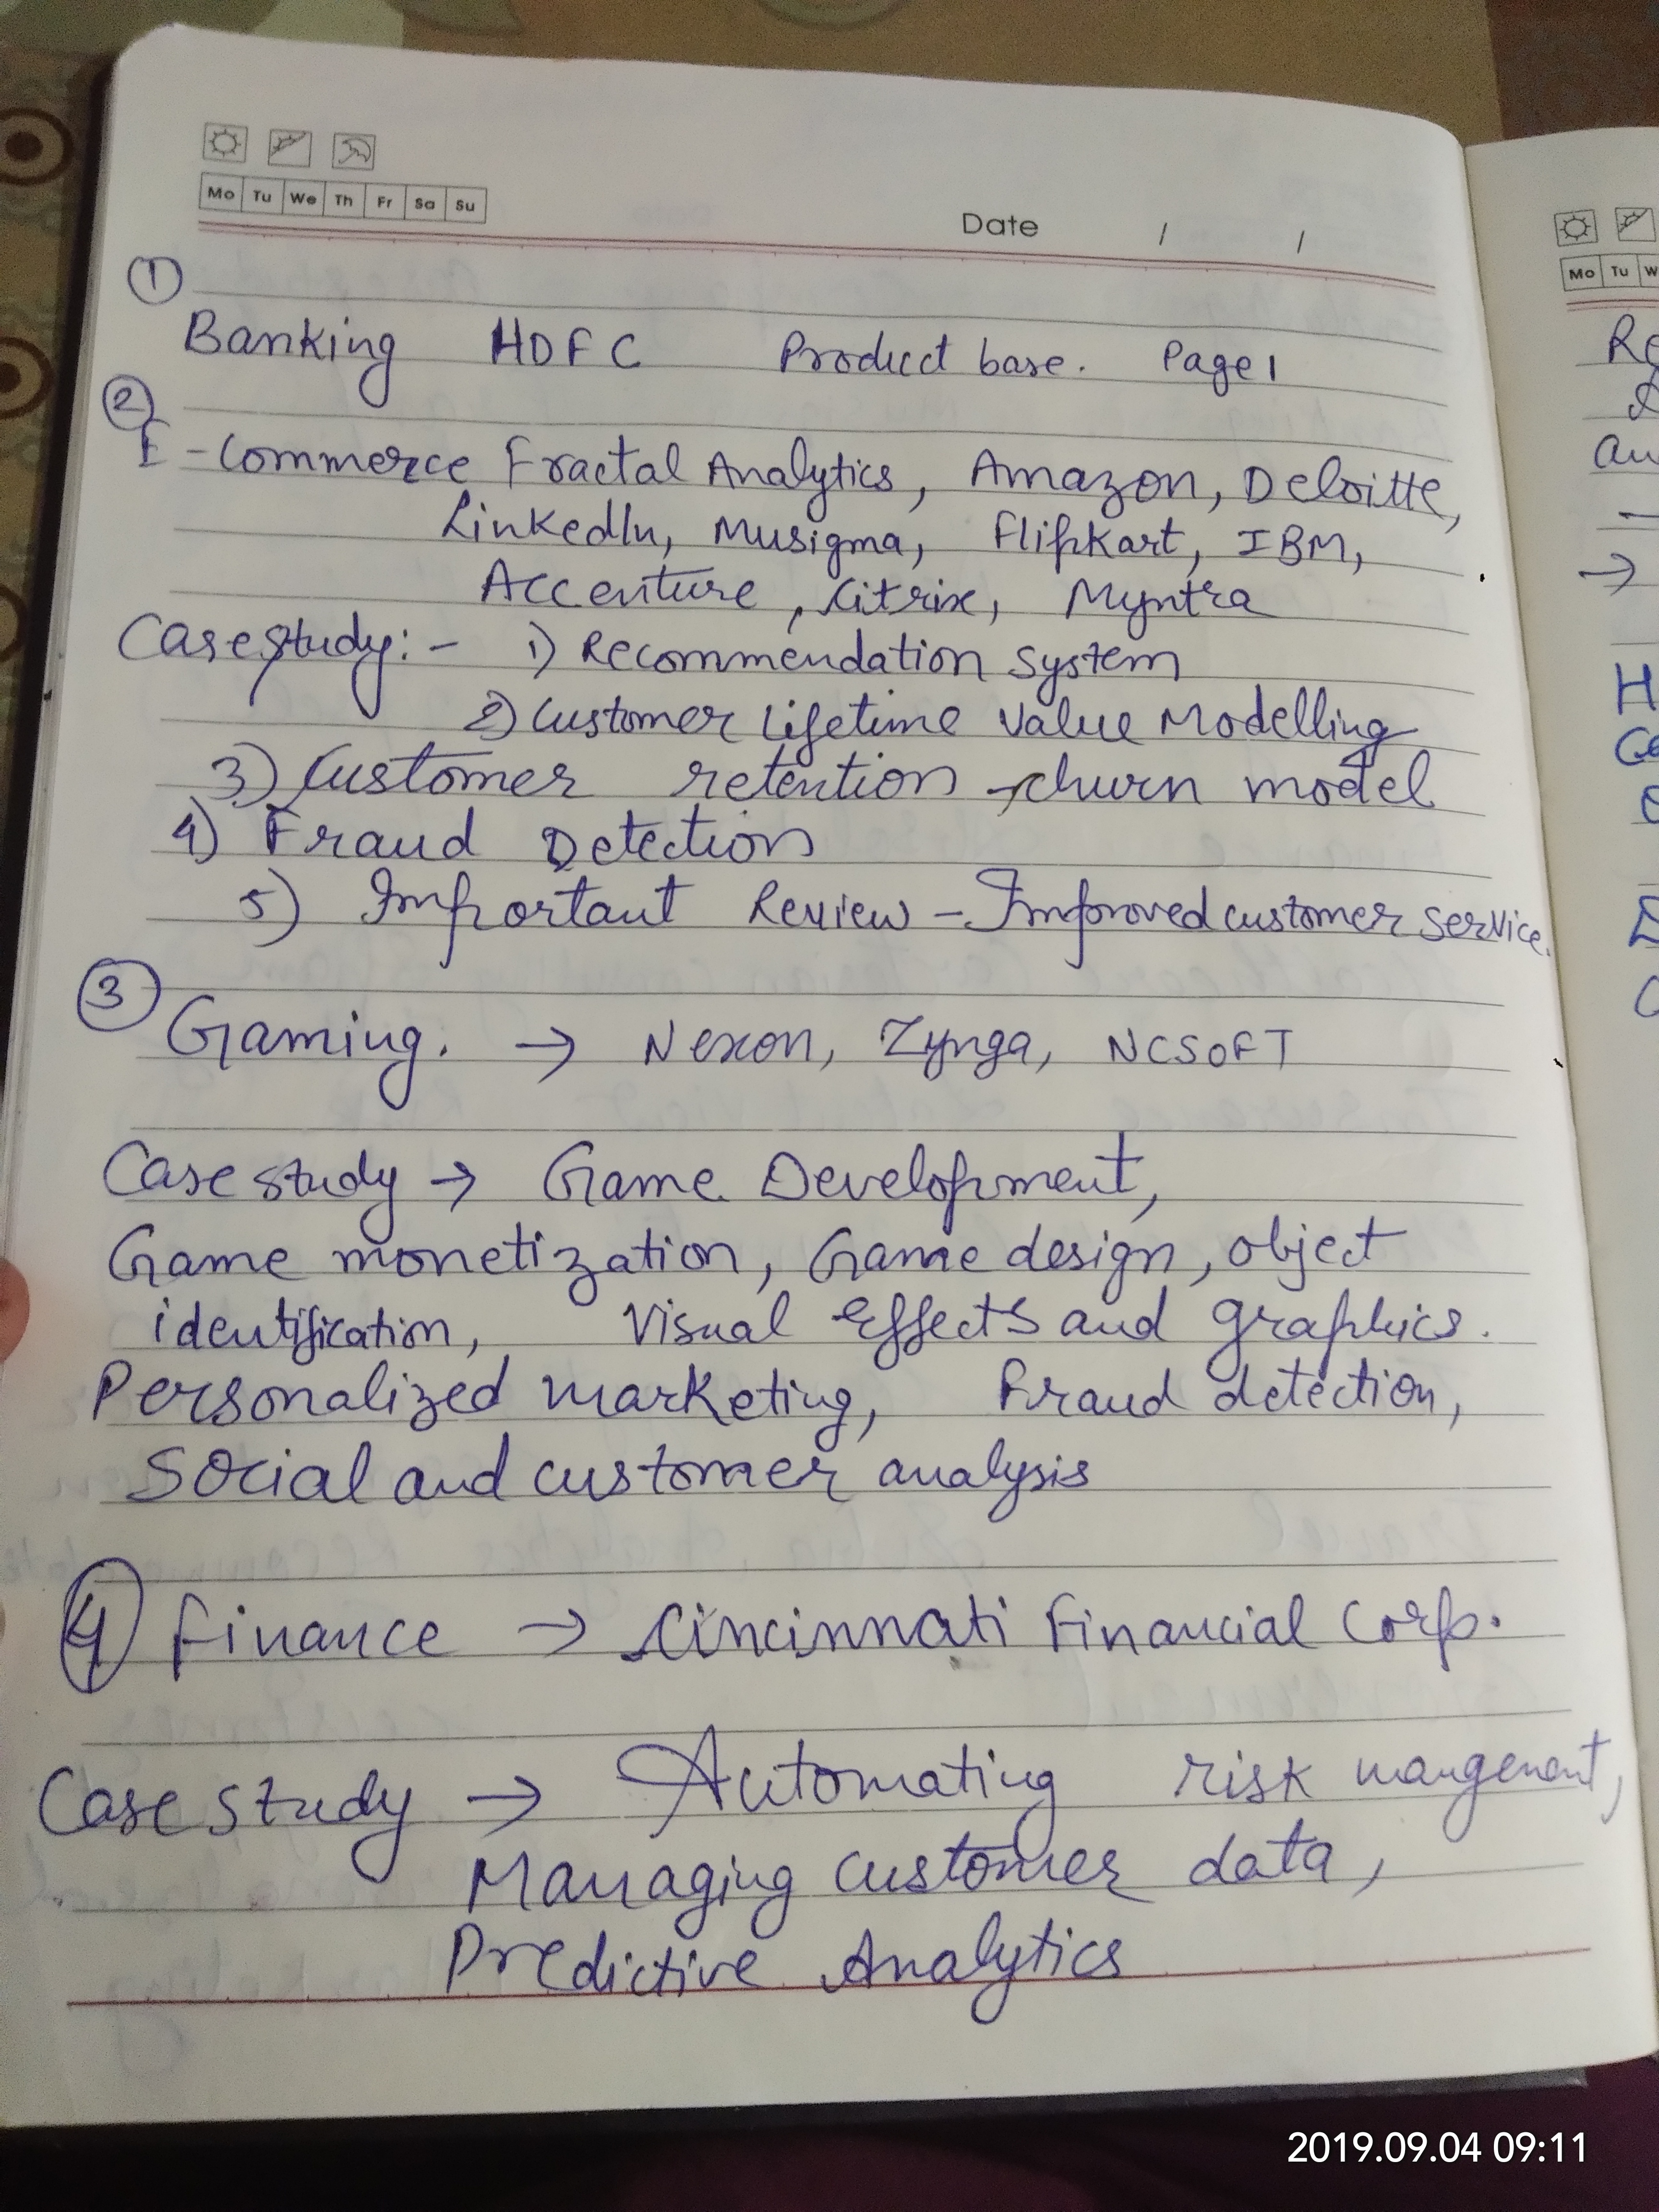 Mo Tu We Th Fr Sa Su
Date / /
①
Banking HDFC Product base. Page 1
②
E-Commerce Fractal Analytics, Amazon, Deloitte,
LinkedIn, Musigma, Flipkart, IBM,
Accenture, Citrix, Myntra
Case study:- 1) Recommendation System
2) Customer Lifetime Value Modelling
3) Customer retention - churn model
4) Fraud Detection
5) Important Review - Improved customer service.
③
Gaming. → Nexon, Zynga, NCSOFT
Case study → Game Development,
Game monetization, Game design, object
identification, Visual Effects and graphics.
Personalized marketing, Fraud detection,
Social and customer analysis
④ Finance → Cincinnati Financial Corp.
Case study → Automating risk mangement,
Managing customer data,
Predictive Analytics
Mo Tu
2019.09.04 09:11